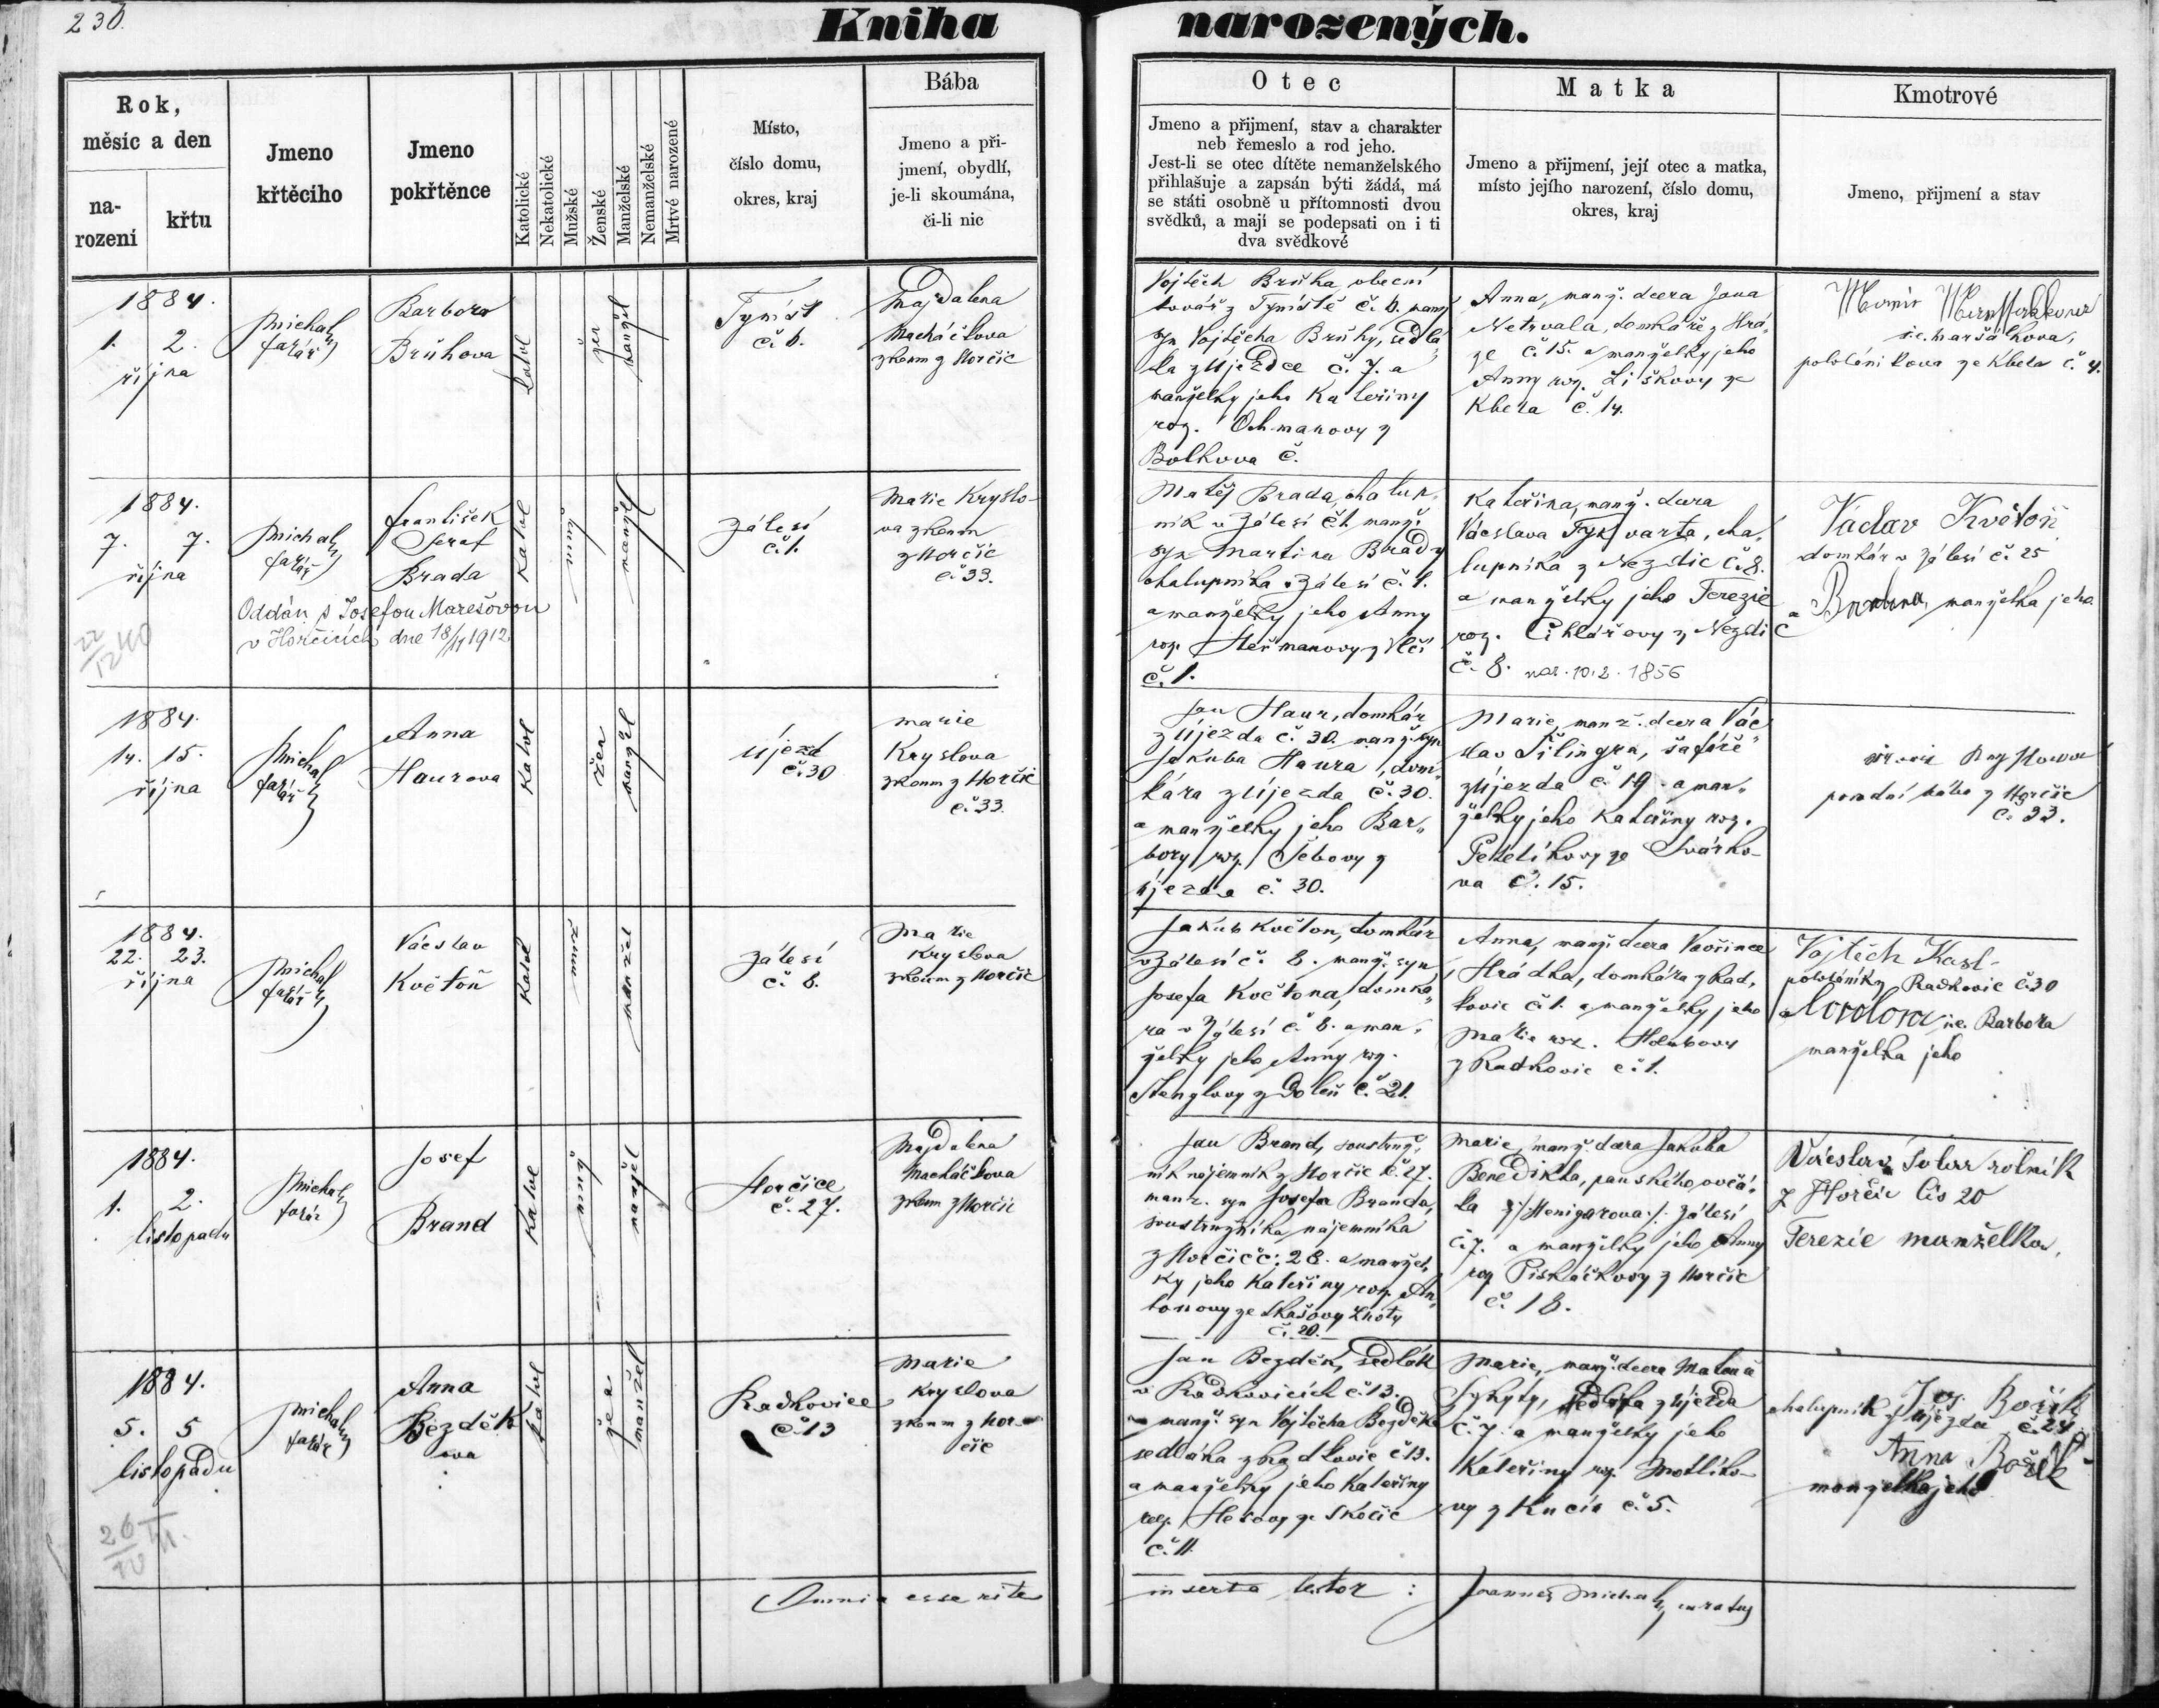 230.
Kniha narozených.
Rok,
měsíc a den
na-
rození
křtu
Jmeno
křtěcího
Jmeno
pokřtěnce
Katolické
Nekatolické
Mužské
Ženské
Manželské
Nemanželské
Mrtvé narozené
Místo,
číslo domu,
okres, kraj
Bába
Jmeno a při-
jmení, obydlí,
je-li skoumána,
či-li nic
Otec
Jmeno a přijmení, stav a charakter
neb řemeslo a rod jeho.
Jest-li se otec dítěte nemanželského
přihlašuje a zapsán býti žádá, má
se státi osobně u přítomnosti dvou
svědků, a mají se podepsati on i ti
dva svědkové
Matka
Jmeno a přijmení, její otec a matka,
místo jejího narození, číslo domu,
okres, kraj
Kmotrové
Jmeno, přijmení a stav
1884.
1. 2.
října
Michal
farář
Barbora
Brůhova
katol
žen
manžel
Týništ
č. 6.
Magdalena
Macháčkova
zkoum z Horčic
Vojtěch Brůha, obecní
kovář z Týniště č. 6. manž
syn Vojtěcha Brůhy, sedlá„
ka z Újezdce č. 7. a
manželky jeho Kateřiny
roz. Ochmanovy z
Bolkova č.
Anna, manž. dcera Jana
Netrvala, domkáře z Hrá„
ze č. 15. a manželky jeho
Anny roz. Liškovy ze
Kbela č. 14.
i.e. Maršálkova,
pololáníkova ze Kbela č. 4.
1884.
7. 7.
října
Michal
farář
František
Seraf
Brada
Katol
muž
manžel
Zálesí
č. 1.
Marie Kryslo-
va zkoum
z Horčic
č. 33.
Oddán s Josefou Marešovou
v Horčicích dne 18/11 1912
22/12 40
Matěj Brada, chalup„
ník v Zálesí č. 1. manž.
syn Martina Brady
chalupníka v Zálesí č. 1.
a manželky jeho Anny
roz. Heřmanovy z Vlčí
č. 1.
Kateřina, manž. dcera
Václava Tykvarta, cha„
lupníka z Nezdic č. 8.
a manželky jeho Terezie
roz. Cihlářovy z Nezdic
č. 8. nar. 10.2.1856
Václav Květoň
domkár v Zálesí č. 25
a Barbora, manželka jeho
1884.
14. 15.
října
Michal
farář
Anna
Haurova
Katol
žen
manžel
Újezd
č. 30
Marie
Kryslova
zkoum z Horčic
č. 33.
Jan Haur, domkár
z Újezda č. 30. manž. syn
Jakuba Haura, dom„
kára z Újezda č. 30.
a manželky jeho Bar„
bory roz. Šebovy z
Újezda č. 30.
Marie, manž. dcera Vác
slav Šilingra, šafáře
z Újezda č. 19 a man„
želky jeho Kateřiny roz.
Petelíkovy ze Svárko-
va č. 15.
Marie Kryslova
porodní bába z Horčic
č. 33.
1884.
22. 23.
října
Michal
farář
Václav
Květoň
Katol
muž
manžel
Zálesí
č. 8.
Marie
Kryslova
zkoum z Horčic
Jakub Květon, domkár
v Zálesí č. 8. manž. syn
Josefa Květona, domká„
ra v Zálesí č. 8. a man„
želky jeho Anny roz.
Stenglovy z Doleň č. 21.
Anna, manž. dcera Vavřince
Hrádka, domkára z Rad„
kovic č. 1. a manželky jeho
Marie roz. Holubovy
z Radkovic č. 1.
Vojtěch Kasl
pololáník z Radkovic č. 30
a i.e. Barbora
manželka jeho
1884.
1. 2.
listopadu
Michal
farář
Josef
Brand
Katol
muž
manžel
Horčice
č. 27.
Magdalena
Macháčkova
zkoum z Horčic
Jan Brand, soustruž„
ník nájemník z Horčic č. 27.
manž. syn Josefa Branda,
soustružníka, nájemníka
z Horčic č. 28. a manžel„
ky jeho Kateřiny roz. An„
tonovy ze Skašovy Lhoty
č. 20.
Marie, manž. dcera Jakuba
Benedikta, panského ovčá„
ka z /: Henigarova :/ Zálesí
č. 7. a manželky jeho Anny
roz Piskáčkovy z Horčic
č. 18.
Václav Solar rolník
z Horčic čís 20
Terezie manželka,
1884.
5. 5
listopadu
Michal
farář
Anna
Bezděk
ova
katol
žen
manžel
Radkovice
č. 13
Marie
Kryslova
zkoum z Hor-
čic
Jan Bezděk, sedlák
v Radkovicích č. 13.
manž. syn Vojtěcha Bezděka
sedláka z Radkovic č. 13.
a manželky jeho Kateřiny
roz. Hesovy ze Skočic
č. 11.
Marie, manž. dcera Matouše
Sykyty, sedláka z Újezda
č. 7. a manželky jeho
Kateřiny roz. Motlíko-
vy z Kucín č. 5.
Jos. Bořík
chalupník z Újezda č. 24 a
Anna Bořík
manželka jeho
Omnia esse rite inserta testor : Joannes Michal, curatus